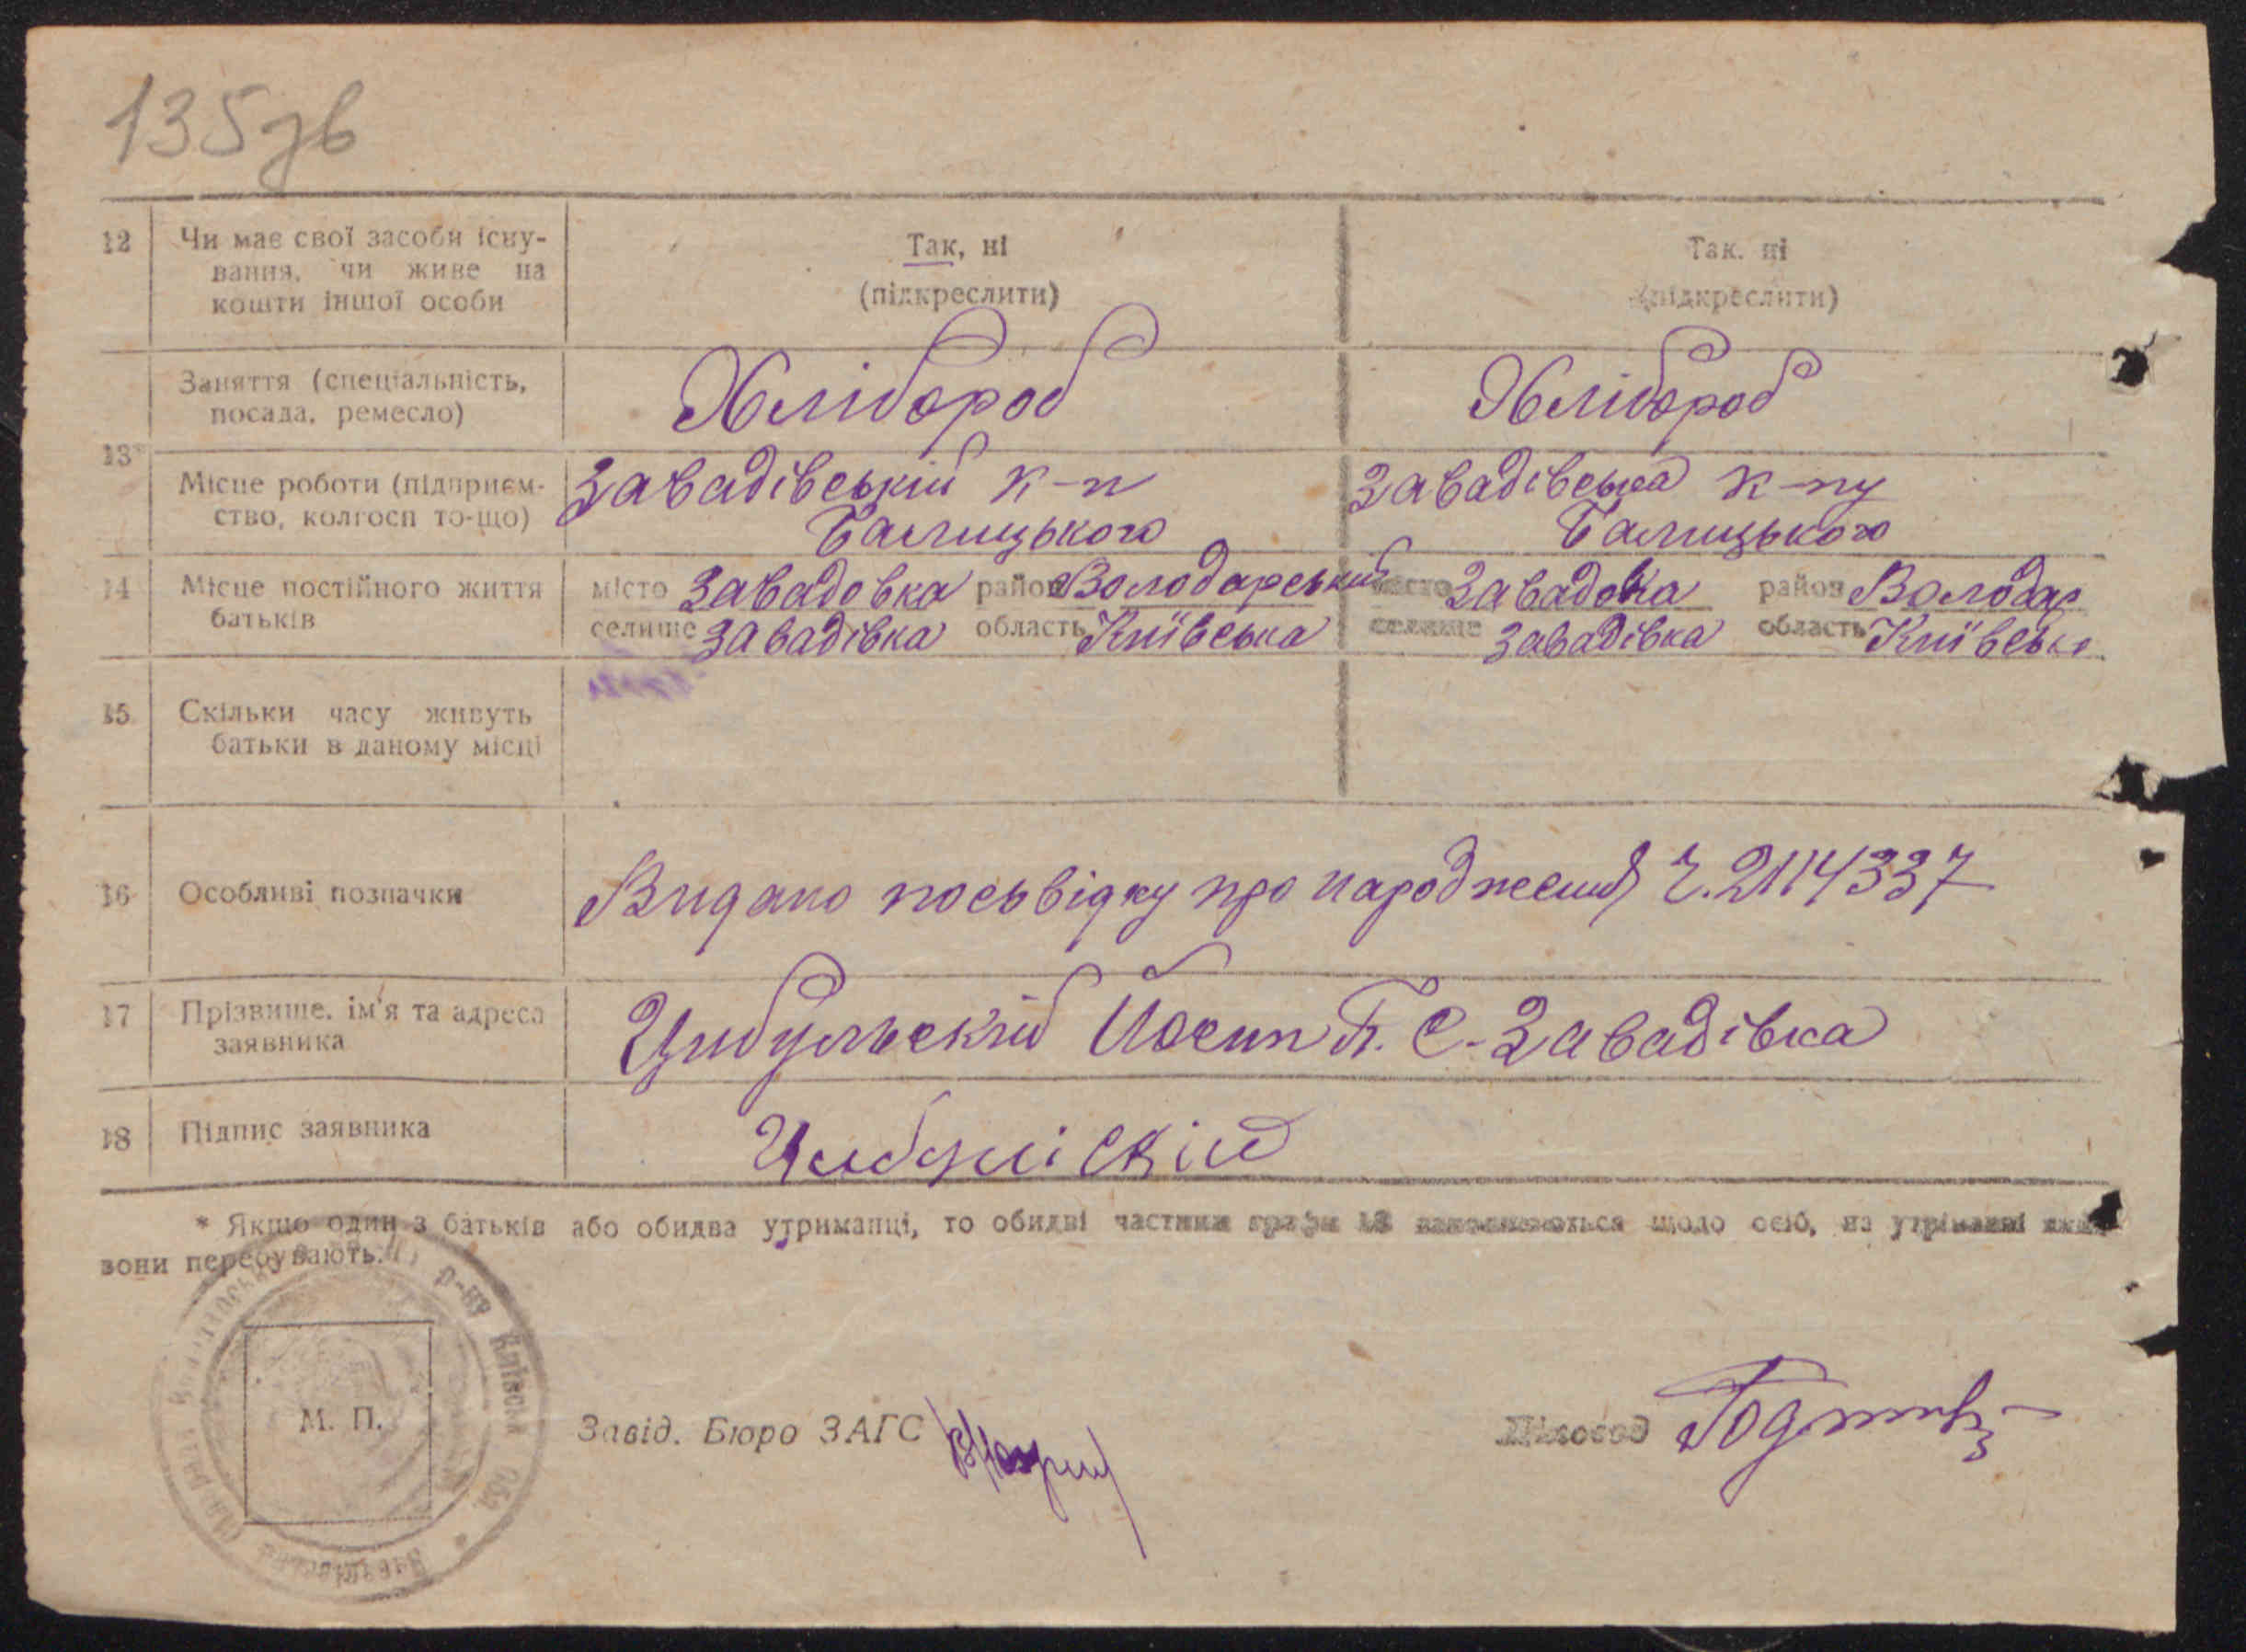 135зв
12 Чи має свої засоби існу- Так, ні Так. ні
вання, чи живе на (підкреслити) (підкреслити)
кошти іншої особи
Заняття (спеціальність, Хлібороб Хлібороб
посада, ремесло)
13
Місце роботи (підприєм- Завадівській к-п Завадівська к-пу
ство, колгосп то-що) Балицького Балицького
14 Місце постійного життя місто Завадовка район Володарський місто Завадовка район Володар
батьків селище Завадівка область Київська селище Завадівка область Київськ
15 Скільки часу живуть
батьки в даному місці
16 Особливі позначки Видано посьвідку про народження Ч. 2114337
17 Прізвище. ім'я та адреса Цибульский Йосип П. С-Завадівка
заявника
18 Підпис заявника Цибулiскiй
* Якщо один з батьків або обидва утриманці, то обидві частини графи 13 заповнюються щодо осіб, на утріманні яких
вони перебувають.
р-ну Київськ обл.
М. П. Завід. Бюро ЗАГС Діловод